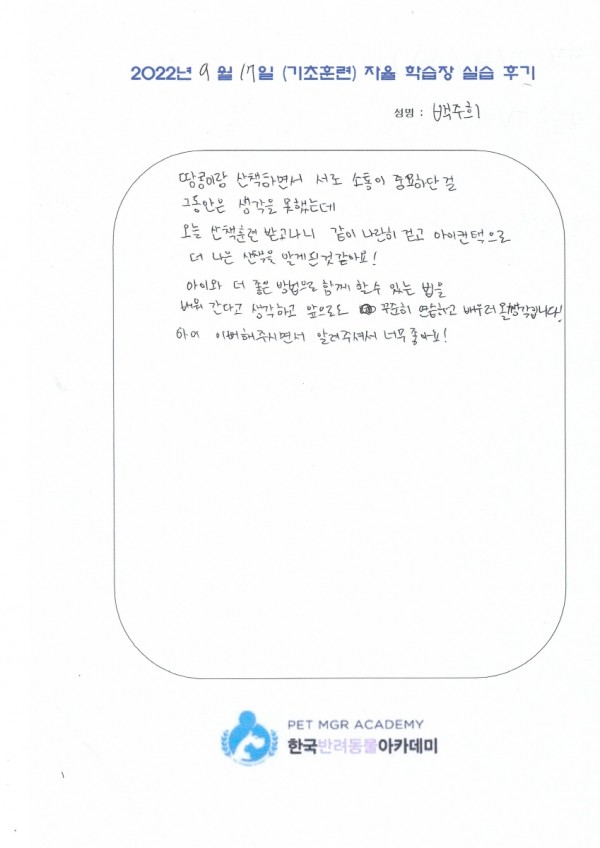 2022년 9월 17일 (기초훈련) 자율 학습장 실습 후기
성명 : 백주희
땅콩이랑 산책하면서 서로 소통이 중요하단걸
그동안은 생각을 못했는데
오늘 산책훈련 받고나니 같이 나란히 걷고 아이컨텍으로
더 나은 산책을 알게된것같아요!
아이와 더 좋은 방법으로 함께 할수 있는 법을
배워 간다고 생각하고 앞으로도 꾸준히 연습하고 배우러 올생각입니다!
이뻐해주시면서 알려주셔서 너무좋아요!
PET MGR ACADEMY
한국반려동물아카데미